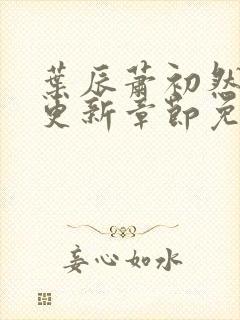 葉辰蕭初然
更新章節免
妄心如水